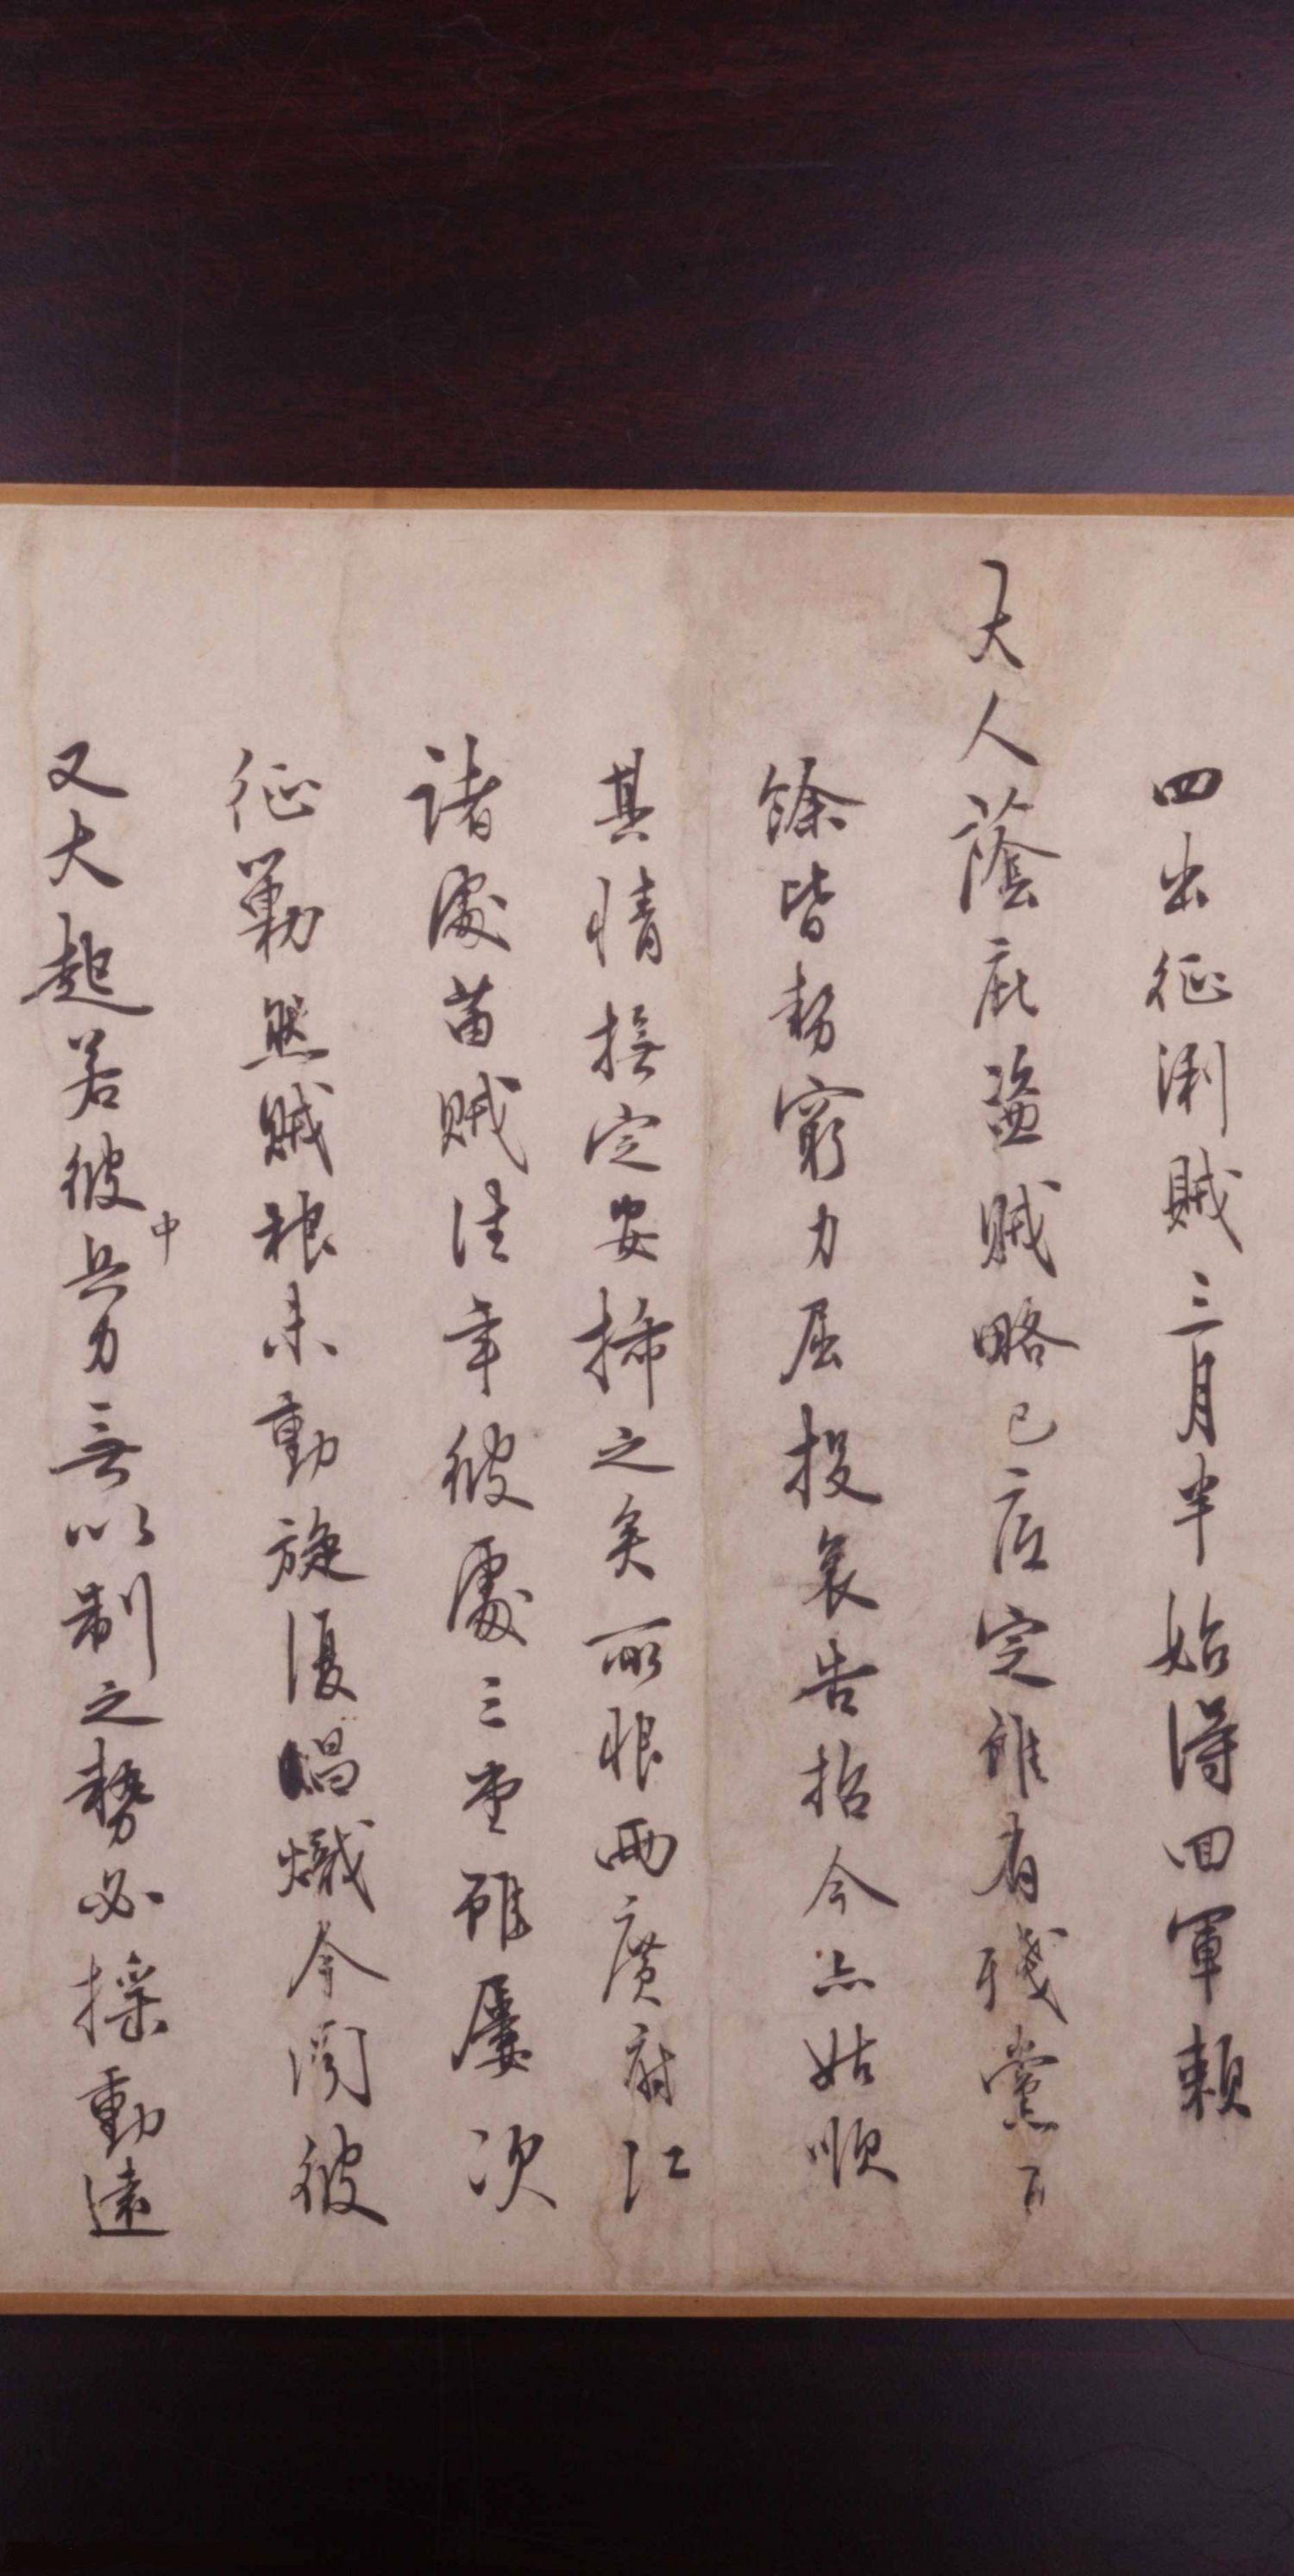 四出征浰賊三月半始得回軍賴
大人蔭庇盜賊略已底定雖有殘黨百
餘皆勢窮力屈投哀告招今亦姑順
其情撫定安插之矣所恨兩廣府江
諸處苗賊往年彼處三堂雖屢次
征勦然賊根未動旋復昌熾今聞彼
又大起若彼中兵力無以制之勢必搖動遠